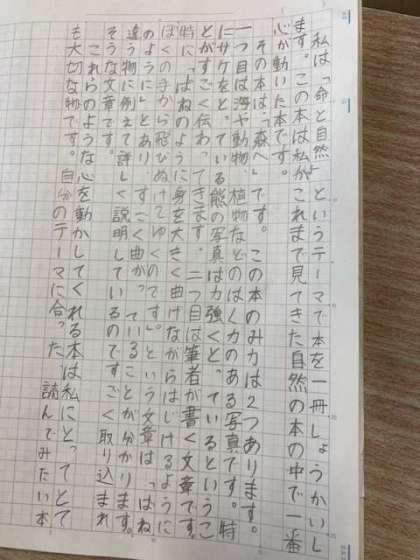 私は「命と自然」というテーマで本を一冊しょうかいし
ます。この本は私がこれまで見てきた自然の本の中で一番
心が動いた本です。
その本は「森へ」です。この本のみ力は2つあります。
一つ目は海や動物、植物などのはく力のある写真です。特
にサケをとっている熊の写真は力強くとっているというこ
とがすごく伝わってきます。二つ目は筆者が書く文章です。
特に「はねのように身を大きく曲げながらはじけるように
ぼくの手から飛びぬけてゆくのです。」という文章は「はね
のように」とあり、すごく曲がっていることが分かります。
違う物に例えて詳しく説明しているのですごく取り込まれ
そうな文章です。
これらのような心を動かしてくれる本は私にとってとて
も大切な物です。自分のテーマに合った読んでみたい本